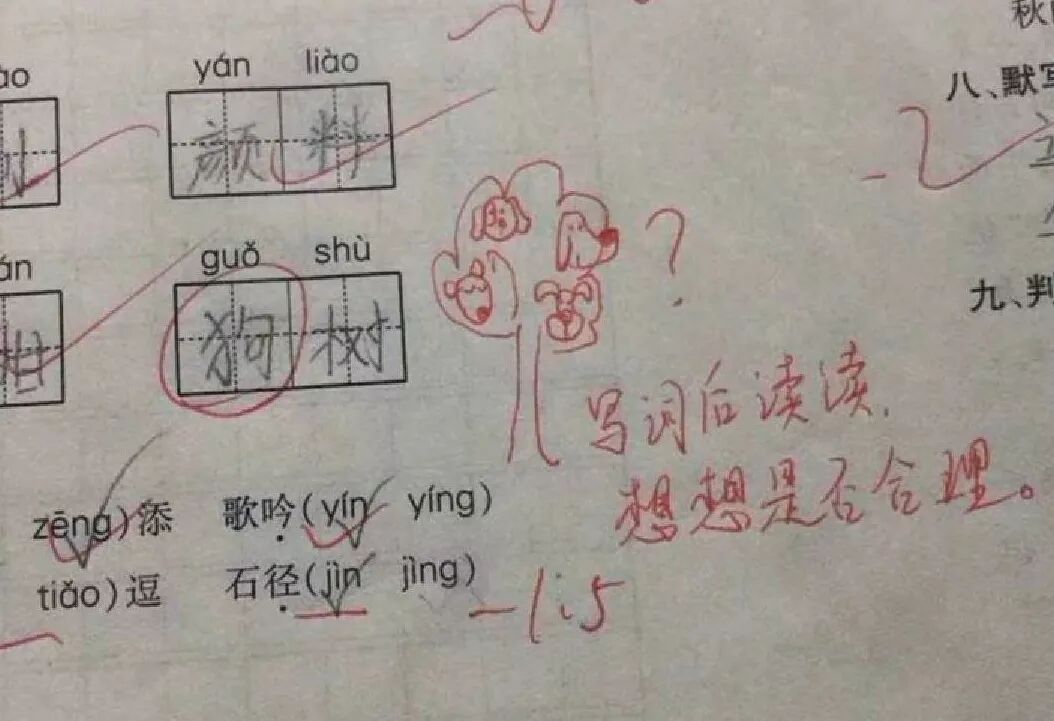 秋
八、默写
yán liào
颜料
?
九、判
án
guǒ shù
狗树
写词后读读,
想想是否合理。
zēng)添 歌吟(yín yíng)
tiǎo)逗 石径(jìn jìng)
-1.5